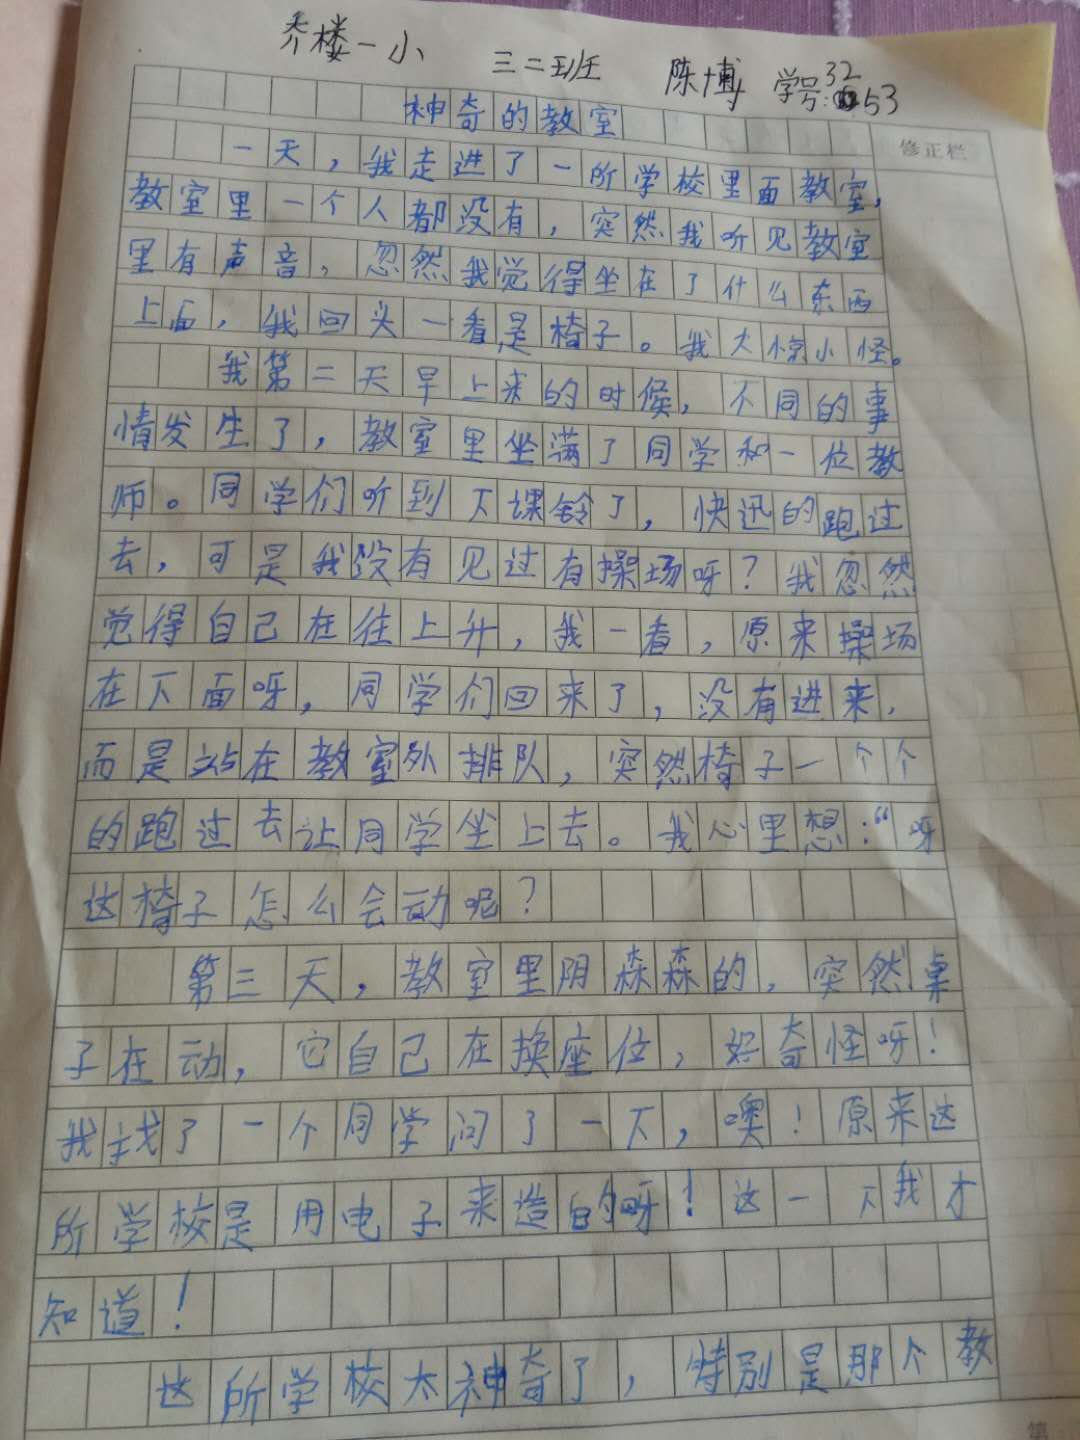 乔楼一小 三二班 陈博 学号:3253
神奇的教室
修正栏
一天，我走进了一所学校里面教室，
教室里一个人都没有，突然我听见教室
里有声音，忽然我觉得坐在了什么东西
上面，我回头一看是椅子。我大惊小怪。
我第二天早上来的时候，不同的事
情发生了，教室里坐满了同学和一位教
师。同学们听到下课铃了，快迅的跑过
去，可是我没有见过有操场呀？我忽然
觉得自己在往上升，我一看，原来操场
在下面呀，同学们回来了，没有进来，
而是站在教室外排队，突然椅子一个个
的跑过去让同学坐上去。我心里想：“呀
这椅子怎么会动呢？
第三天，教室里阴森森的，突然桌
子在动，它自己在换座位，好奇怪呀！
我找了一个同学问了一下，噢！原来这
所学校是用电子来造的呀！这一下我才
知道！
这所学校太神奇了，特别是那个教
第